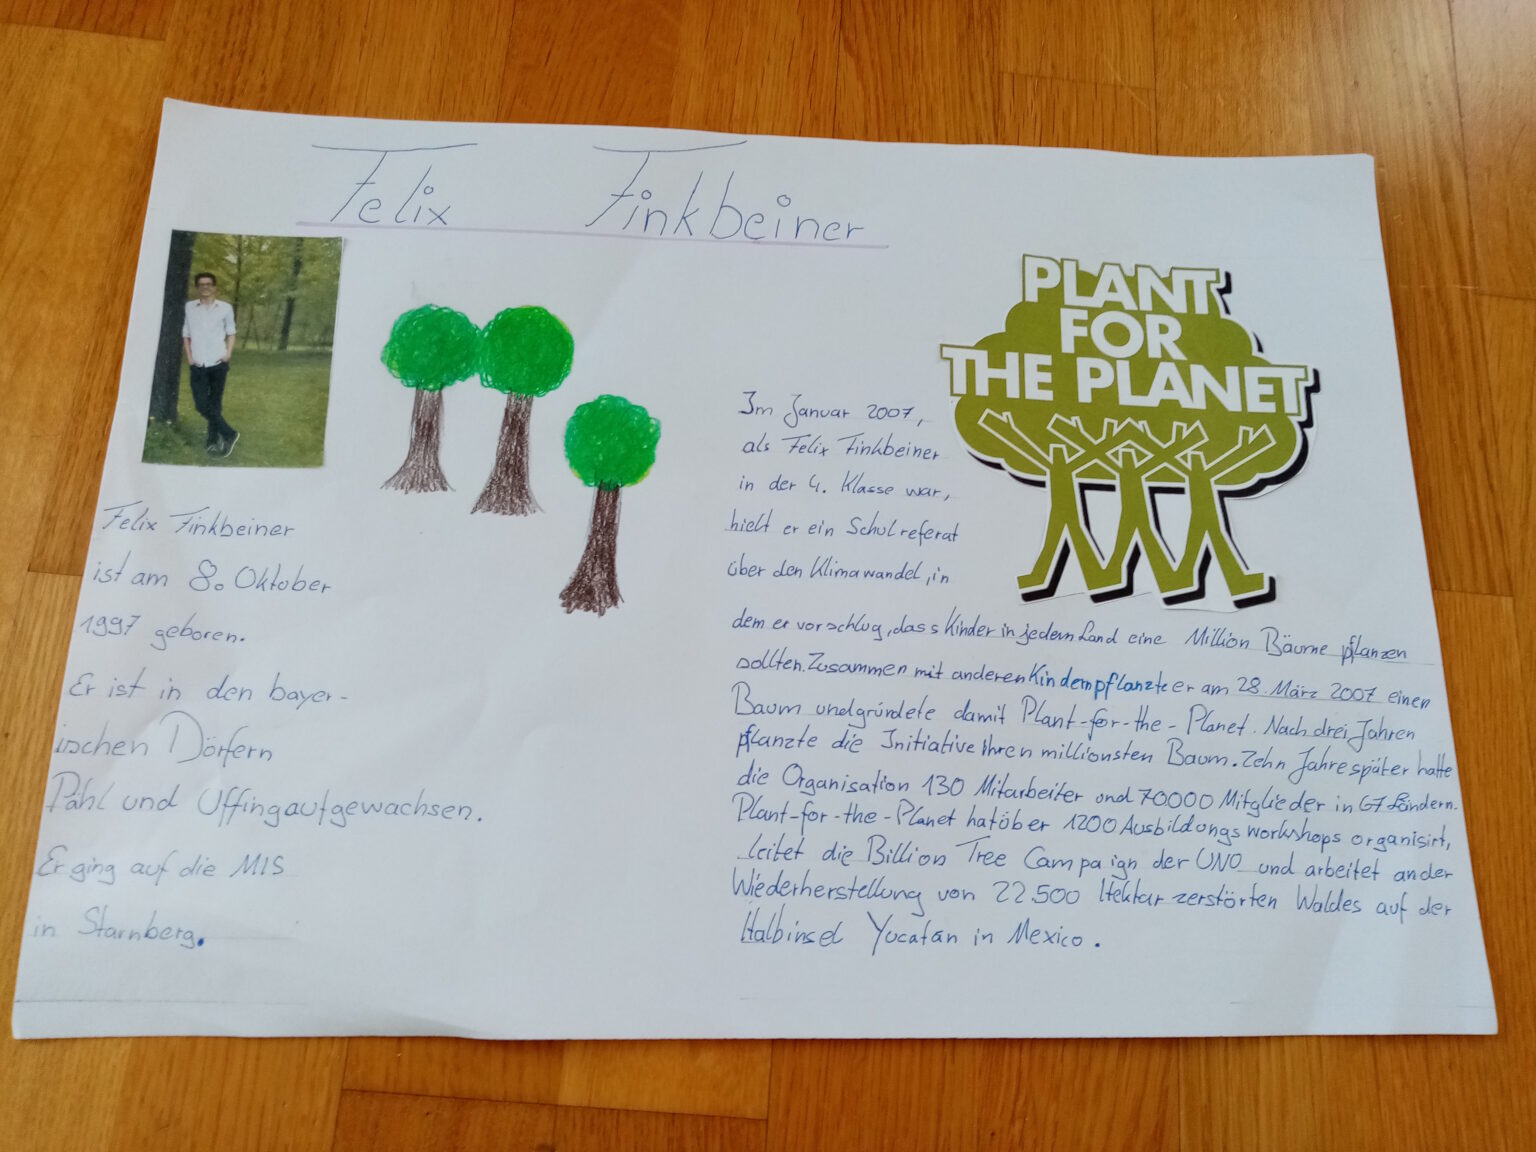 Felix Finkbeiner
Felix Finkbeiner
ist am 8. Oktober
1997 geboren.
Er ist in den bayer-
ischen Dörfern
Pähl und Uffing aufgewachsen.
Er ging auf die MIS
in Starnberg.
PLANT
FOR
THE PLANET
Im Januar 2007,
als Felix Finkbeiner
in der 4. Klasse war,
hielt er ein Schulreferat
über den Klimawandel, in
dem er vorschlug, dass Kinder in jedem Land eine Million Bäume pflanzen
sollten. Zusammen mit anderen Kindern pflanzte er am 28. März 2007 einen
Baum und gründete damit Plant-for-the-Planet. Nach drei Jahren
pflanzte die Initiative ihren millionsten Baum. Zehn Jahre später hatte
die Organisation 130 Mitarbeiter und 70000 Mitglieder in 67 Ländern.
Plant-for-the-Planet hat über 1200 Ausbildungsworkshops organisirt,
leitet die Billion Tree Campaign der UNO und arbeitet an der
Wiederherstellung von 22.500 Hektar zerstörten Waldes auf der
Halbinsel Yucatán in Mexico.